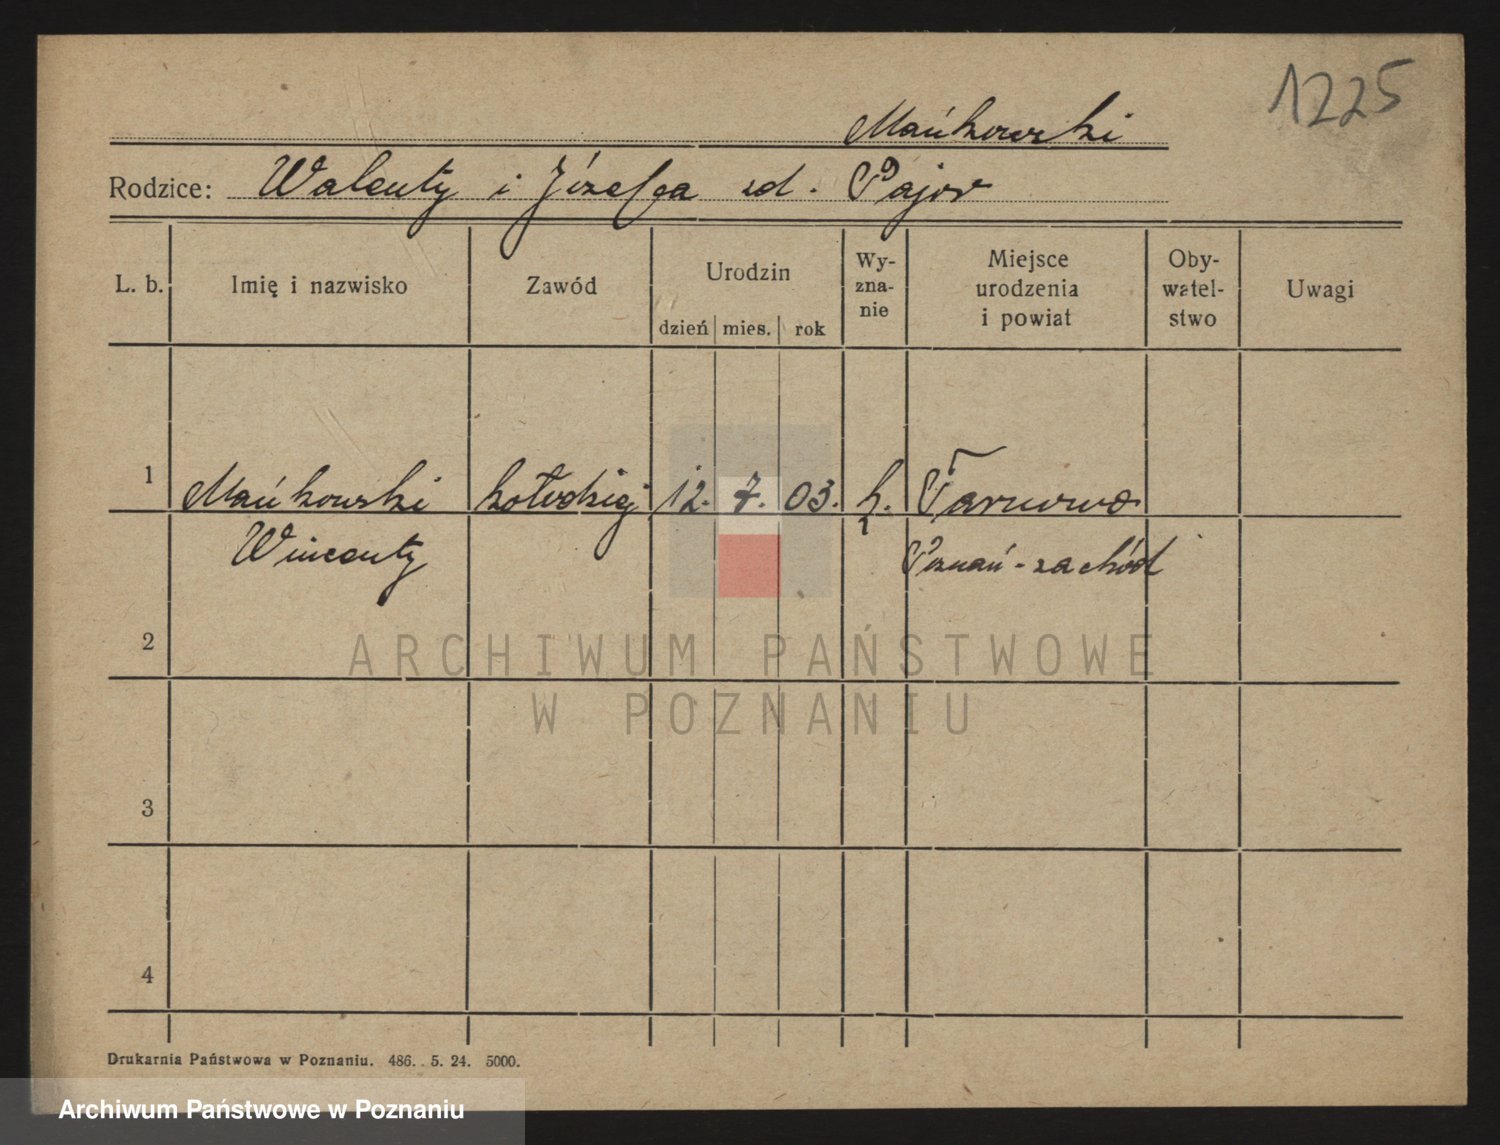 1225
Mańkowski
Rodzice: Walenty i Józefa zd. Pajor
L. b. Imię i nazwisko Zawód Urodzin dzień mies. rok Wy-zna-nie Miejsce urodzenia i powiat Oby-watel-stwo Uwagi
1 Mańkowski kołodziej 12. 7. 03. k. Tarnowo
Wincenty Poznań-zachód
2
3
4
Drukarnia Państwowa w Poznaniu. 486. 5. 24. 5000.
ARCHIWUM PAŃSTWOWE
W POZNANIU
Archiwum Państwowe w Poznaniu